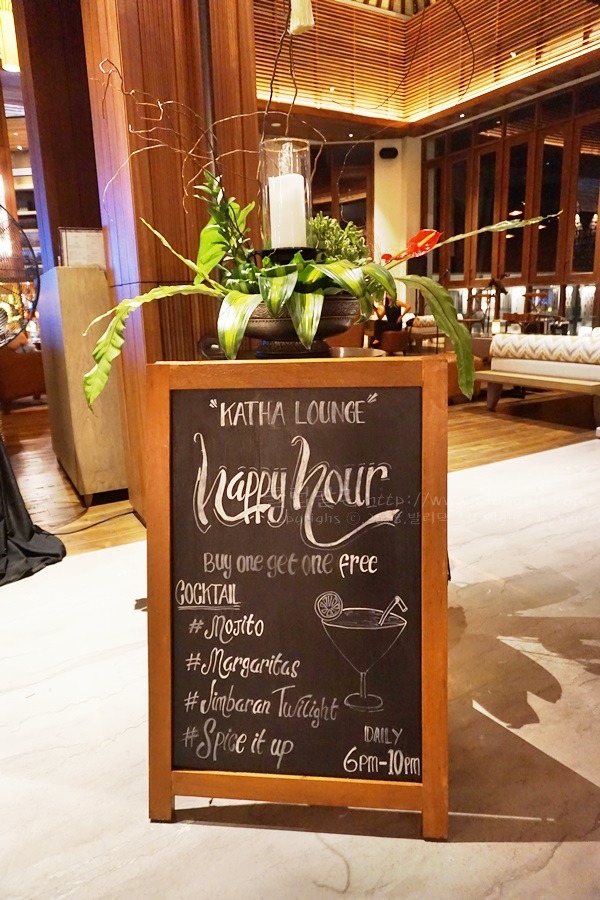 "KATHA LOUNGE"
happy hour
Buy one get one free
COCKTAIL
#Mojito
#Margaritas
#Jimbaran Twilight
#Spice it up
DAILY
6PM-10PM